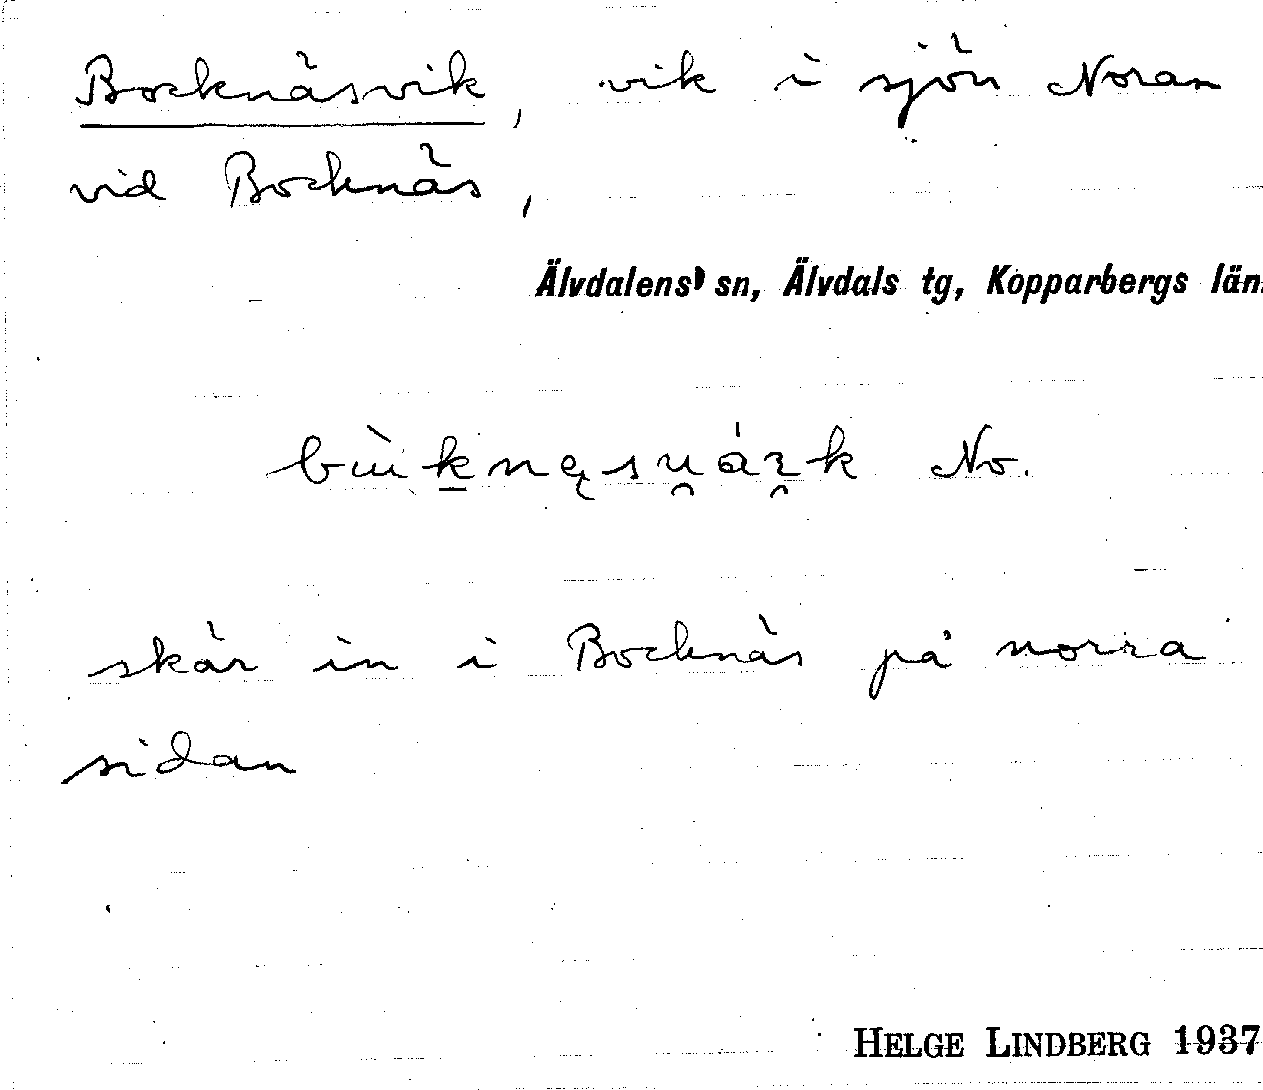 Bocknäsvik, vik i sjön Noran
vid Bocknäs,
Älvdalens sn, Älvdals tg, Kopparbergs län.
No.
skär in i Bocknäs på norra
sidan
HELGE LINDBERG 1937